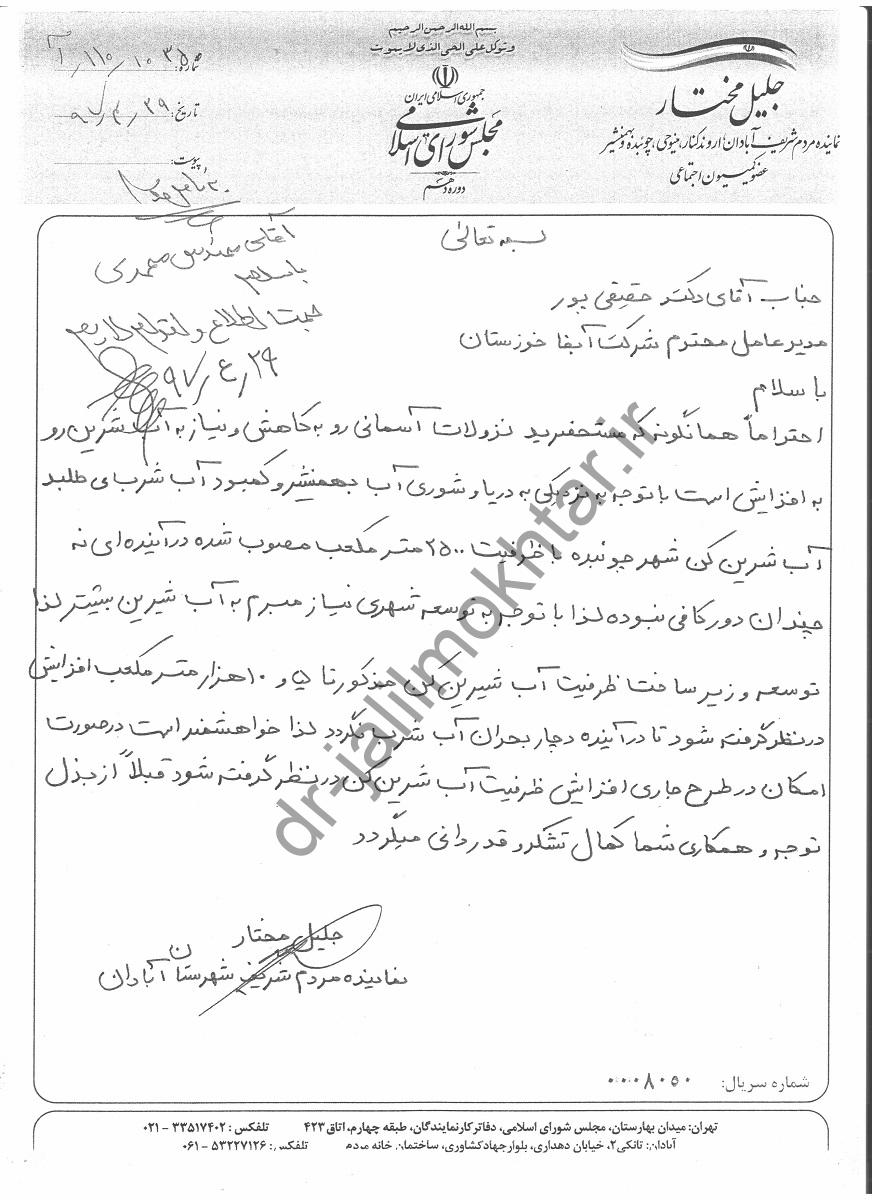 بسم الله الرحمن الرحیم
و توکل علی الحی الذی لا یموت
جمهوری اسلامی ایران
مجلس شورای اسلامی
دوره دهم
جلیل مختار
نماینده مردم شریف آبادان، اروندکنار، مینوحی، چوئبده و بهمنشیر
عضو کمیسیون اجتماعی
شماره:
تاریخ: ۹۷/۴/۲۹
پیوست:
آقای مهندس محمدی
با سلام
جهت اطلاع و اقدام لازم
۹۷/۴/۲۹
بسمه تعالی
جناب آقای دکتر حقیقی پور
مدیر عامل محترم شرکت آبفا خوزستان
با سلام
احتراماً همانگونه که مستحضرید نزولات آسمانی رو به کاهش و نیاز به آب شرین رو
به افزایش است با توجه به نزدیکی به دریا و شوری آب بهمنشیر و کمبود آب شرب می طلبد
آب شرین کن شهر چوئبده با ظرفیت ۲۵۰۰ متر مکعب مصوب شده در آینده ای نه
چندان دور کافی نبوده لذا با توجه به توسعه شهری نیاز مبرم به آب شیرین بیشتر لذا
توسعه و زیر ساخت ظرفیت آب شیرین کن مذکور تا ۵ و ۱۰ هزار متر مکعب افزایش
در نظر گرفته شود تا در آینده دچار بحران آب شرب نگردد لذا خواهشمند است در صورت
امکان در طرح جاری افزایش ظرفیت آب شرین کن در نظر گرفته شود قبلاً از بذل
توجه و همکاری شما کمال تشکر و قدردانی میگردد
جلیل مختار
نماینده مردم شریف شهرستان آبادان
شماره سریال: ۰۰۰۸۰۵۰
تهران: میدان بهارستان، مجلس شورای اسلامی، دفاتر کار نمایندگان، طبقه چهارم، اتاق ۴۲۳ تلفکس: ۳۳۵۱۷۴۰۲ - ۰۲۱
آبادان: تانکی۲، خیابان دهداری، بلوار جهاد کشاورزی، ساختمان خانه مردم تلفکس: ۵۳۲۲۷۱۲۶ - ۰۶۱
dr-jalilmokhtar.ir